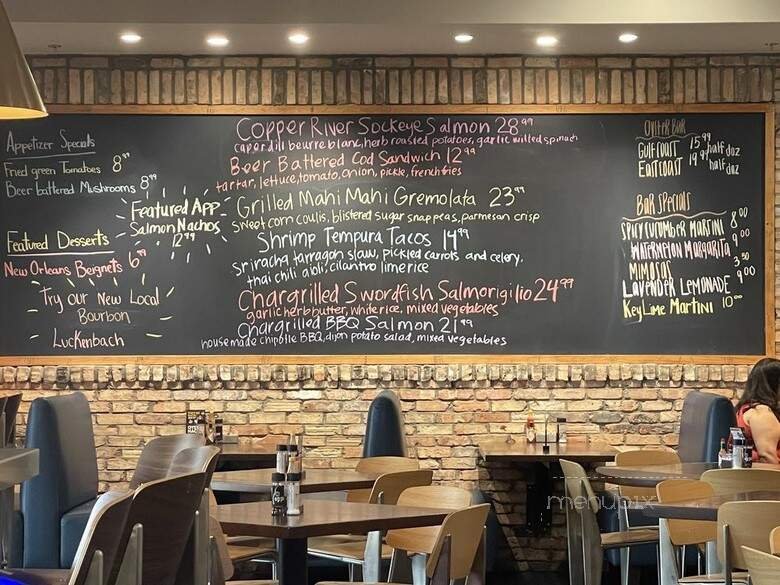 Appetizer Specials
Fried green Tomatoes 8⁹⁹
Beer battered Mushrooms 8⁹⁹
Featured App
Salmon Nachos
12⁹⁹
Featured Desserts
New Orleans Beignets 6⁹⁹
Try our New Local
Bourbon
Luckenbach
Copper River Sockeye Salmon 28⁹⁹
caper dill beurre blanc, herb roasted potatoes, garlic wilted spinach
Beer Battered Cod Sandwich 12⁹⁹
tartar, lettuce, tomato, onion, pickle, french fries
Grilled Mahi Mahi Gremolata 23⁹⁹
sweet corn coulis, blistered sugar snap peas, parmesan crisp
Shrimp Tempura Tacos 14⁹⁹
sriracha tarragon slaw, pickled carrots and celery,
thai chili aioli, cilantro lime rice
Chargrilled Swordfish Salmorigilio 24⁹⁹
garlic herb butter, white rice, mixed vegetables
Chargrilled BBQ Salmon 21⁹⁹
house made chipotle BBQ, dijon potato salad, mixed vegetables
Oyster Bar
Gulf Coast 15.99 half doz
East Coast 19.99 half doz
Bar Specials
Spicy Cucumber Martini 8⁰⁰
Watermelon Margarita 9⁰⁰
Mimosas 3⁵⁰
Lavender Lemonade 9⁰⁰
Key Lime Martini 10⁰⁰
menupix